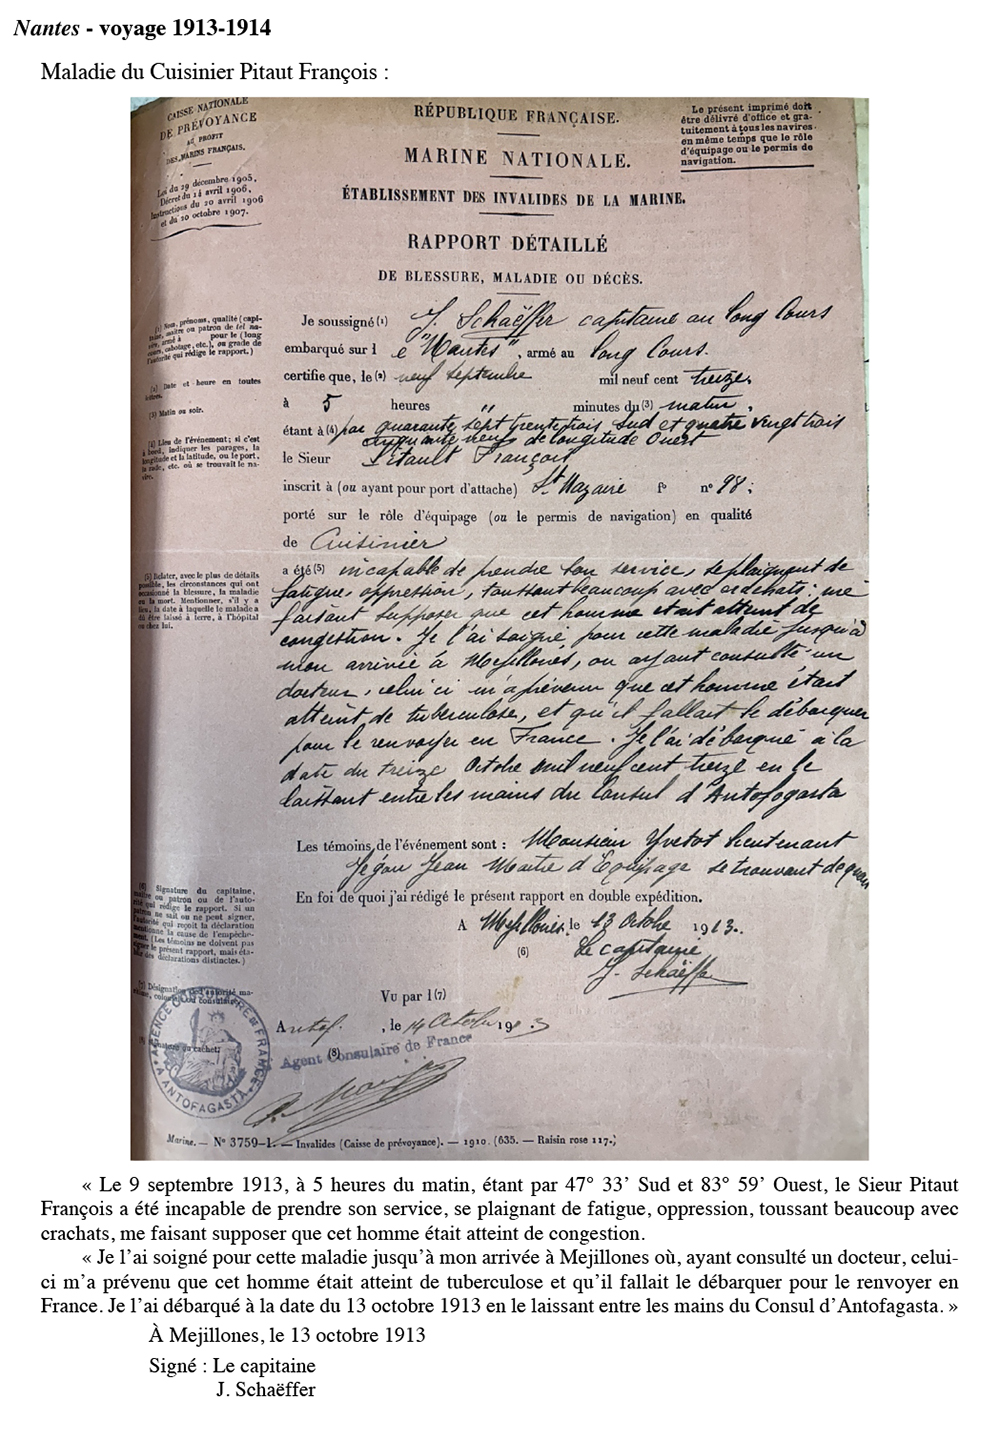 Nantes - voyage 1913-1914
Maladie du Cuisinier Pitaut François :
CAISSE NATIONALE
DE PRÉVOYANCE
AU PROFIT
DES MARINS FRANÇAIS.
Loi du 29 décembre 1905,
Décret du 14 avril 1906,
Instructions du 20 avril 1906
et du 20 octobre 1907.
RÉPUBLIQUE FRANÇAISE.
MARINE NATIONALE.
ÉTABLISSEMENT DES INVALIDES DE LA MARINE.
Le présent imprimé doit
être délivré d'office et gra-
tuitement à tous les navires
en même temps que le rôle
d'équipage ou le permis de
navigation.
RAPPORT DÉTAILLÉ
DE BLESSURE, MALADIE OU DÉCÈS.
(1) Nom, prénoms, qualité (capi-
taine, maître ou patron de tel na-
vire, armé à pour le (long
cours, cabotage, etc.), ou grade de
l'autorité qui rédige le rapport.)
(2) Date et heure en toutes
lettres.
(3) Matin ou soir.
(4) Lieu de l'événement; si c'est
à bord, indiquer les parages, la
longitude et la latitude, ou le port,
la rade, etc. où se trouvait le na-
vire.
Je soussigné (1) J. Schaëffer capitaine au Long Cours
embarqué sur l e "Nantes", armé au Long Cours.
certifie que, le (2) neuf septembre mil neuf cent treize,
à 5 heures " minutes du (3) matin,
étant à (4) par quarante sept trente trois Sud et quatre vingt trois
cinquante neuf de longitude Ouest
le Sieur Pitault François
inscrit à (ou ayant pour port d'attache) St Nazaire fº nº 98;
porté sur le rôle d'équipage (ou le permis de navigation) en qualité
de Cuisinier
(5) Relater, avec le plus de détails
possible, les circonstances qui ont
occasionné la blessure, la maladie
ou la mort. Mentionner, s'il y a
lieu, la date à laquelle le malade a
dû être laissé à terre, à l'hôpital
ou chez lui.
a été (5) incapable de prendre son service, se plaignant de
fatigue, oppression, toussant beaucoup avec crachats; me
faisant supposer que cet homme était atteint de
congestion. Je l'ai soigné pour cette maladie jusqu'à
mon arrivée à Mejillonés, ou ayant consulté un
docteur, celui ci m'a prévenu que cet homme était
atteint de tuberculose, et qu'il fallait le débarquer
pour le renvoyer en France. Je l'ai débarqué à la
date du treize Octobre mil neuf cent treize en le
laissant entre les mains du Consul d'Antofogasta
Les témoins de l'événement sont : Monsieur Yvetot Lieutenant
Jégou Jean Maitre d'Equipage se trouvant de quart
En foi de quoi j'ai rédigé le présent rapport en double expédition.
A Mejillonès, le 13 Octobre 1913.
(6) Le capitaine
J. Schaëffer
(6) Signature du capitaine,
maître ou patron ou de l'auto-
rité qui rédige le rapport. Si un
patron ne sait ou ne peut signer,
l'autorité qui reçoit la déclaration
mentionne la cause de l'empêche-
ment. (Les témoins ne doivent pas
signer le présent rapport, mais éta-
blir des déclarations distinctes.)
Vu par l (7)
A Antof. , le 14 Octobre 1913
(8)
Agent Consulaire de France
AGENCE CONSULAIRE DE FRANCE
A ANTOFAGASTA
Marine. — Nº 3759-1. — Invalides (Caisse de prévoyance). — 1910. (635. — Raisin rose 117.)
« Le 9 septembre 1913, à 5 heures du matin, étant par 47° 33’ Sud et 83° 59’ Ouest, le Sieur Pitaut
François a été incapable de prendre son service, se plaignant de fatigue, oppression, toussant beaucoup avec
crachats, me faisant supposer que cet homme était atteint de congestion.
« Je l’ai soigné pour cette maladie jusqu’à mon arrivée à Mejillones où, ayant consulté un docteur, celui-
ci m’a prévenu que cet homme était atteint de tuberculose et qu’il fallait le débarquer pour le renvoyer en
France. Je l’ai débarqué à la date du 13 octobre 1913 en le laissant entre les mains du Consul d’Antofagasta. »
À Mejillones, le 13 octobre 1913
Signé : Le capitaine
J. Schaëffer